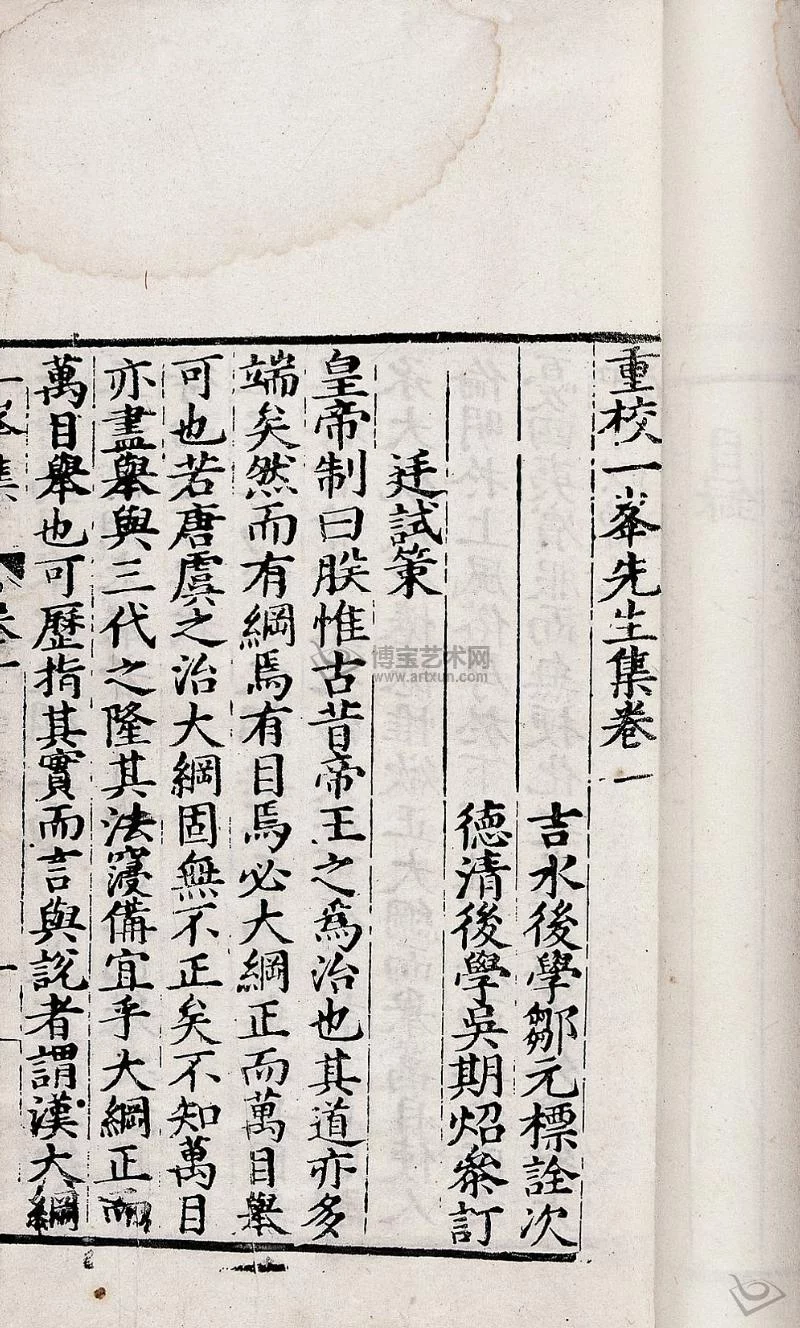 重校一峯先生集卷一
吉水後學鄒元標詮次
德清後學吳期炤叅訂
廷試策
皇帝制曰朕惟古昔帝王之為治也其道亦多
端矣然而有綱焉有目焉必大綱正而萬目舉
可也若唐虞之治大綱固無不正矣不知萬目
亦盡舉與三代之隆其法寖備宜乎大綱正而
萬目舉也可歷指其實而言與說者謂漢大綱
博宝艺术网
www.artxun.com